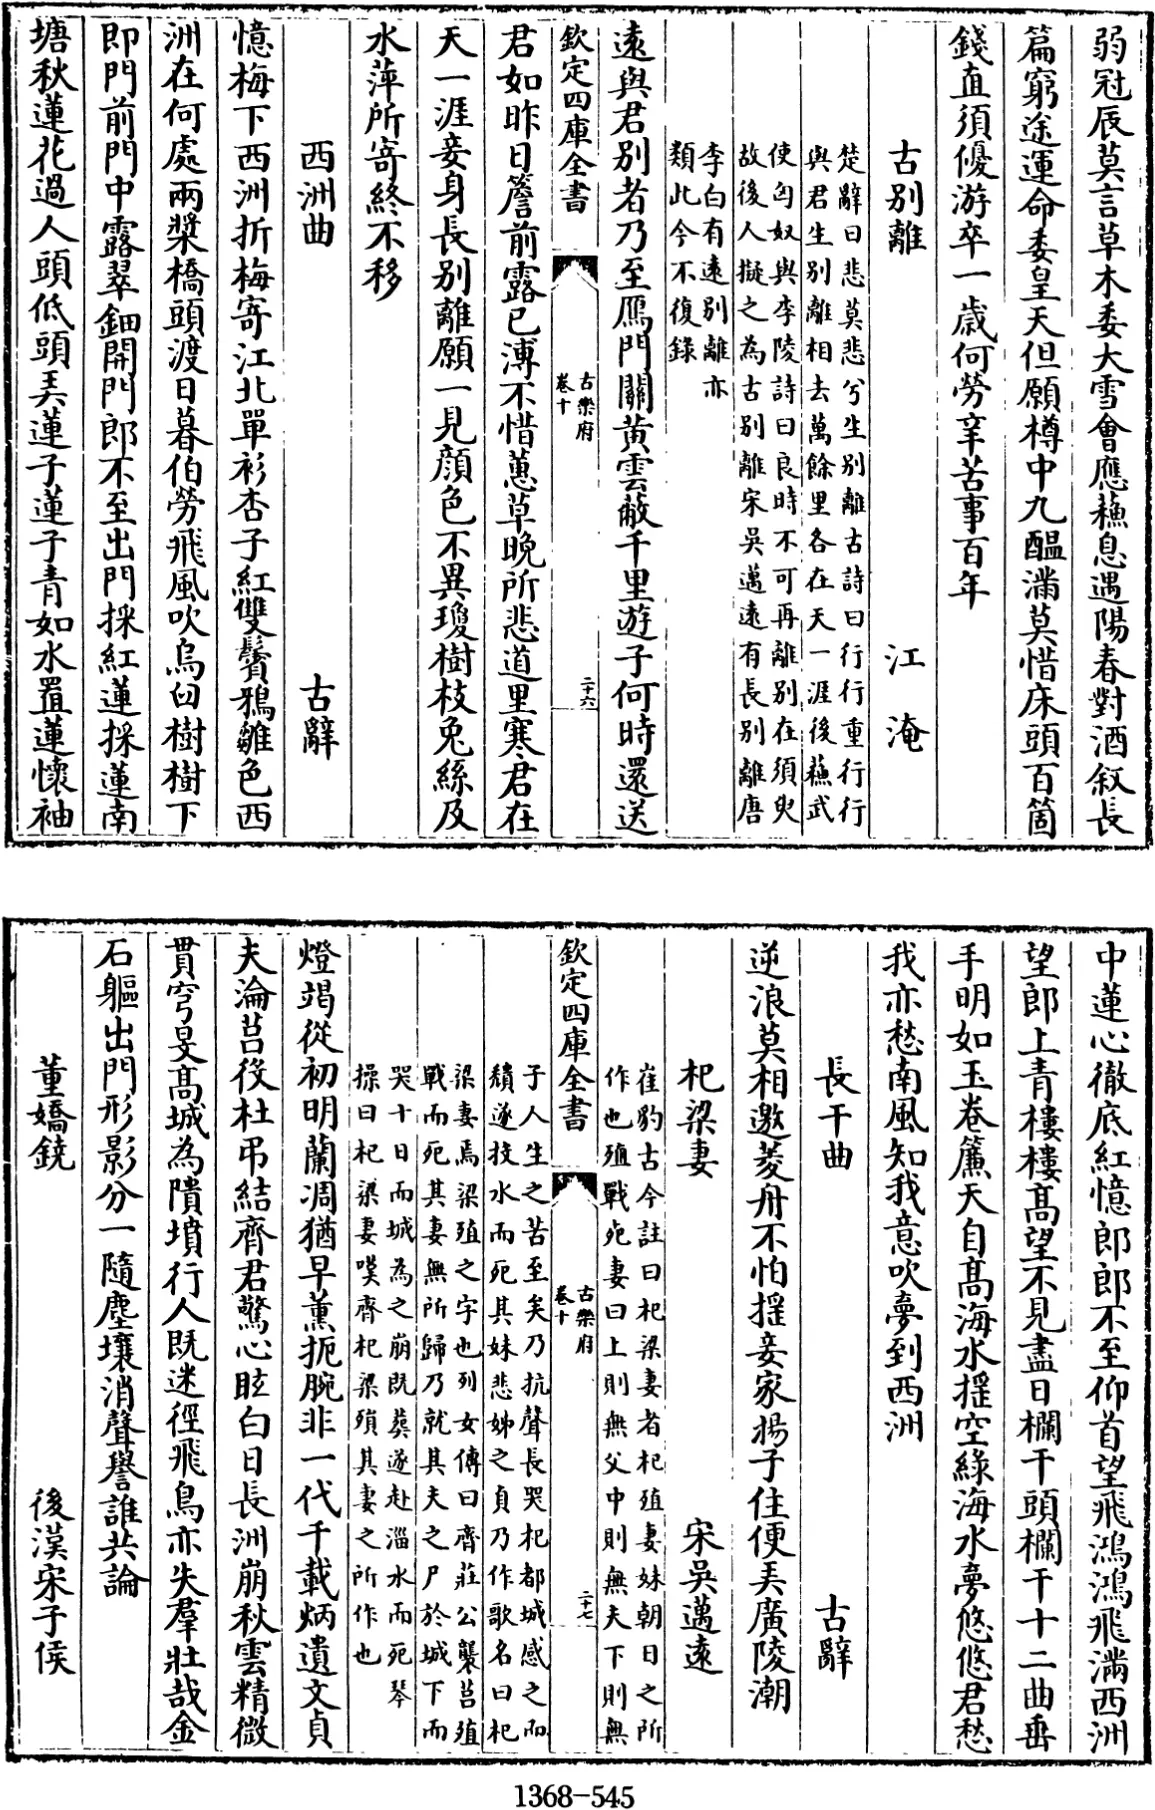 弱冠辰莫言草木委大雪會應蘓息遇陽春對酒叙長
篇窮途運命委皇天但願樽中九醖滿莫惜床頭百箇
錢直須優游卒一歲何勞辛苦事百年
古别離 江淹
楚辭曰悲莫悲兮生别離古詩曰行行重行行
與君生别離相去萬餘里各在天一涯後蘓武
使匈奴與李陵詩曰良時不可再離别在須臾
故後人擬之為古别離宋吳邁逺有長别離唐
李白有逺别離亦
類此今不復錄
逺與君别者乃至鴈門關黄雲蔽千里遊子何時還送
欽定四庫全書
古樂府
卷十
二十六
君如昨日簷前露已漙不惜蕙草晚所悲道里寒君在
天一涯妾身長别離願一見顔色不異瓊樹枝兔絲及
水萍所寄終不移
西洲曲 古辭
憶梅下西洲折梅寄江北單衫杏子紅雙鬢鴉雛色西
洲在何處兩槳橋頭渡日暮伯勞飛風吹烏臼樹樹下
即門前門中露翠鈿開門郎不至出門採紅蓮採蓮南
塘秋蓮花過人頭低頭弄蓮子蓮子青如水置蓮懷袖
中蓮心徹底紅憶郎郎不至仰首望飛鴻鴻飛滿西洲
望郎上青樓樓髙望不見盡日欄干頭欄干十二曲垂
手明如玉卷簾天自髙海水揺空綠海水夢悠悠君愁
我亦愁南風知我意吹夢到西洲
長干曲 古辭
逆浪莫相邀菱舟不怕揺妾家揚子住便弄廣陵潮
杞梁妻 宋吳邁逺
崔豹古今註曰杞梁妻者杞殖妻妹朝日之所
作也殖戰死妻曰上則無父中則無夫下則無
欽定四庫全書
古樂府
卷十
二十七
子人生之苦至矣乃抗聲長哭杞都城感之而
頽遂投水而死其妹悲姊之貞乃作歌名曰杞
梁妻焉梁殖之字也列女傳曰齊莊公襲莒殖
戰而死其妻無所歸乃就其夫之尸於城下而
哭十日而城為之崩既葬遂赴淄水而死琴
操曰杞梁妻嘆齊杞梁殖其妻之所作也
燈竭從初明蘭凋猶早薰扼腕非一代千載炳遺文貞
夫淪莒役杜弔結齊君驚心眩白日長洲崩秋雲精微
貫穹旻髙城為隤墳行人既迷徑飛鳥亦失羣壯哉金
石軀出門形影分一隨塵壤消聲譽誰共論
董嬌饒 後漢宋子侯
1368-545